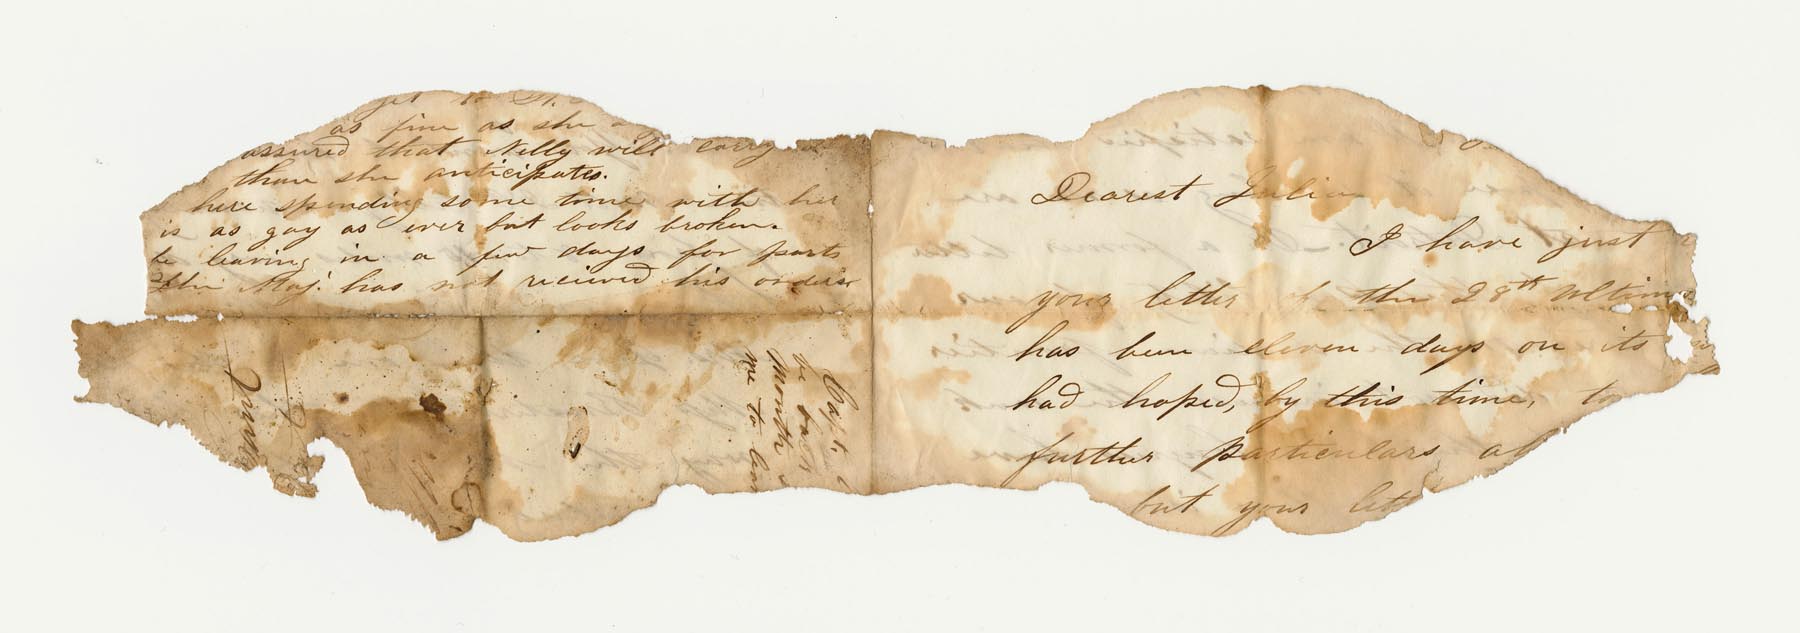 get to St.
as fine as she
assured that Nelly will carry
than she anticipates.
here spending some time with her
is as gay as ever but looks broken.
be leaving in a few days for parts
The Maj. has not received his orders
Capt.
be
month
me to
Dearest Julia
I have just
your letter of the 28th Ultim
has been eleven days on its
had hoped, by this time, to
further particulars a
but your lett